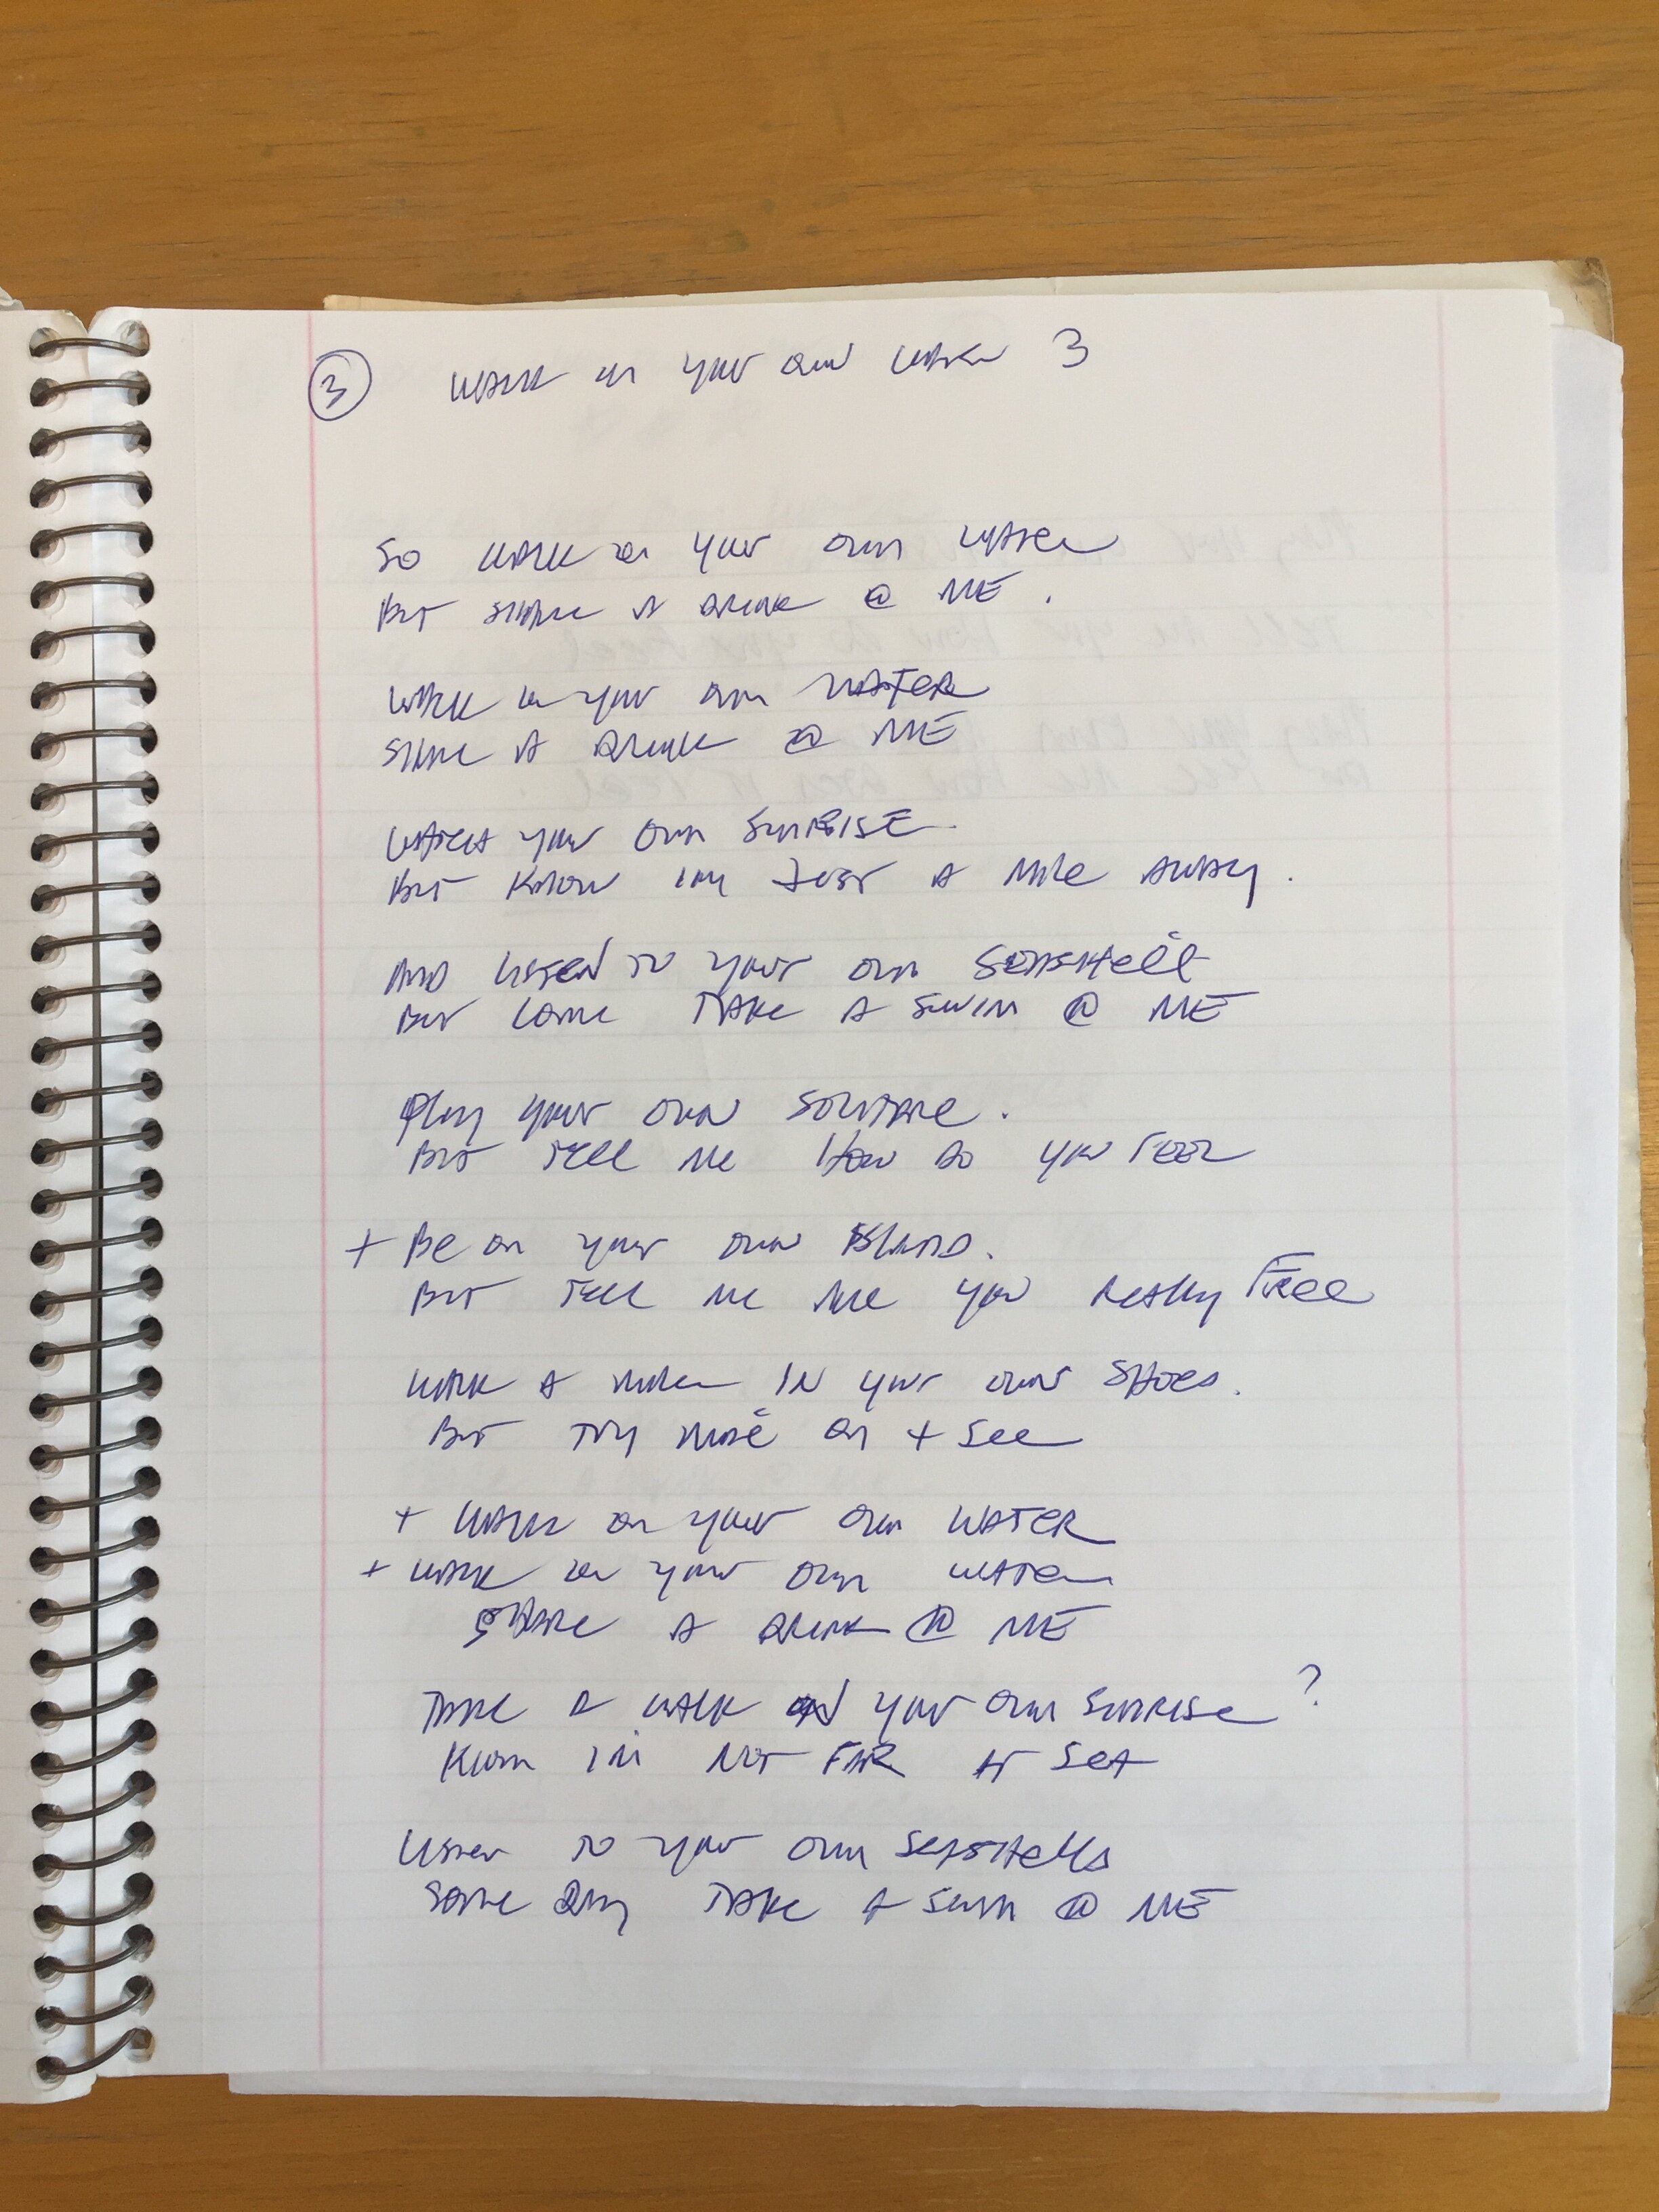 ③ WALK on your own WATER 3
So WALK on your own WATER
But SHARE A DRINK @ ME.
WALK on your own WATER
SHARE A DRINK @ ME
WATCH your own SUNRISE.
But Know im JUST A Mile AWAY.
AND LISTEN TO your own SEASHELL
But Come TAKE A SWIM @ ME
Play your own SOLITAIRE.
But TELL ME How Do you FEEL
+ Be on your own ISLAND.
But TELL ME ARE you REALLY FREE
WALK A mile IN your own SHOES.
But TRY mine on + See
+ WALK on your own WATER
+ WALK on your own WATER
SHARE A DRINK @ ME
TAKE A WALK ON your own SUNRISE ?
Know IM NOT FAR AT SEA
LISTEN TO your own SEASHELLS
Some DAY TAKE A SWIM @ ME